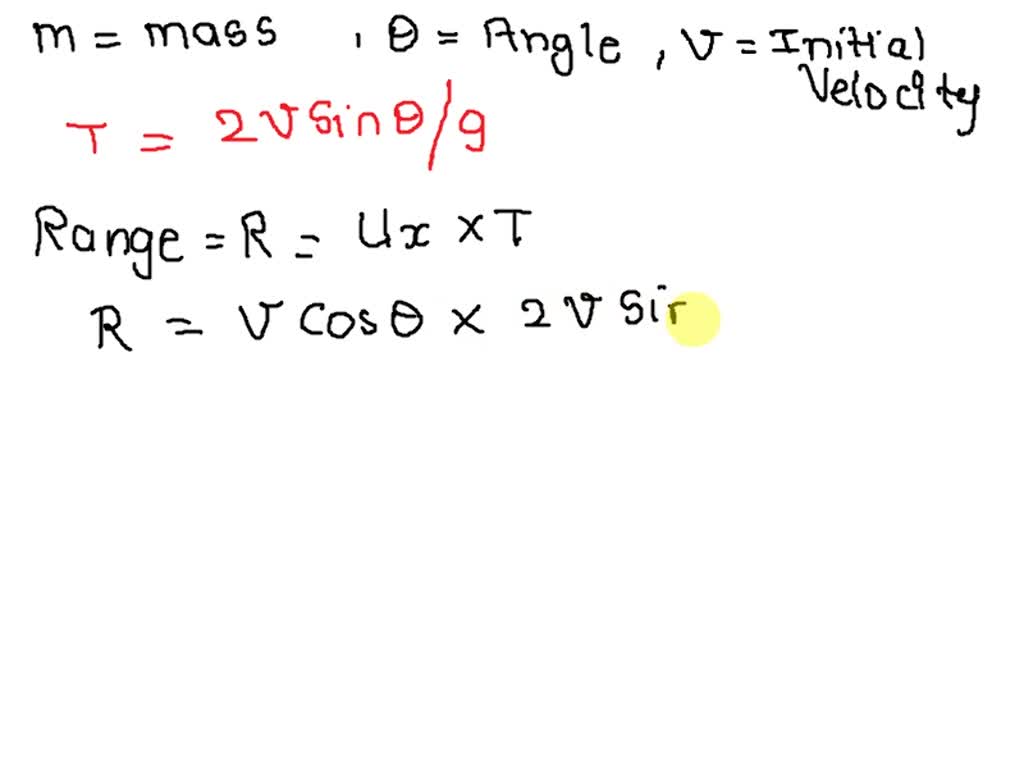 m = mass , θ = Angle , V = Initial
Velocity
T = 2VSinθ/g
Range = R = Ux × T
R = V Cosθ × 2V Sir